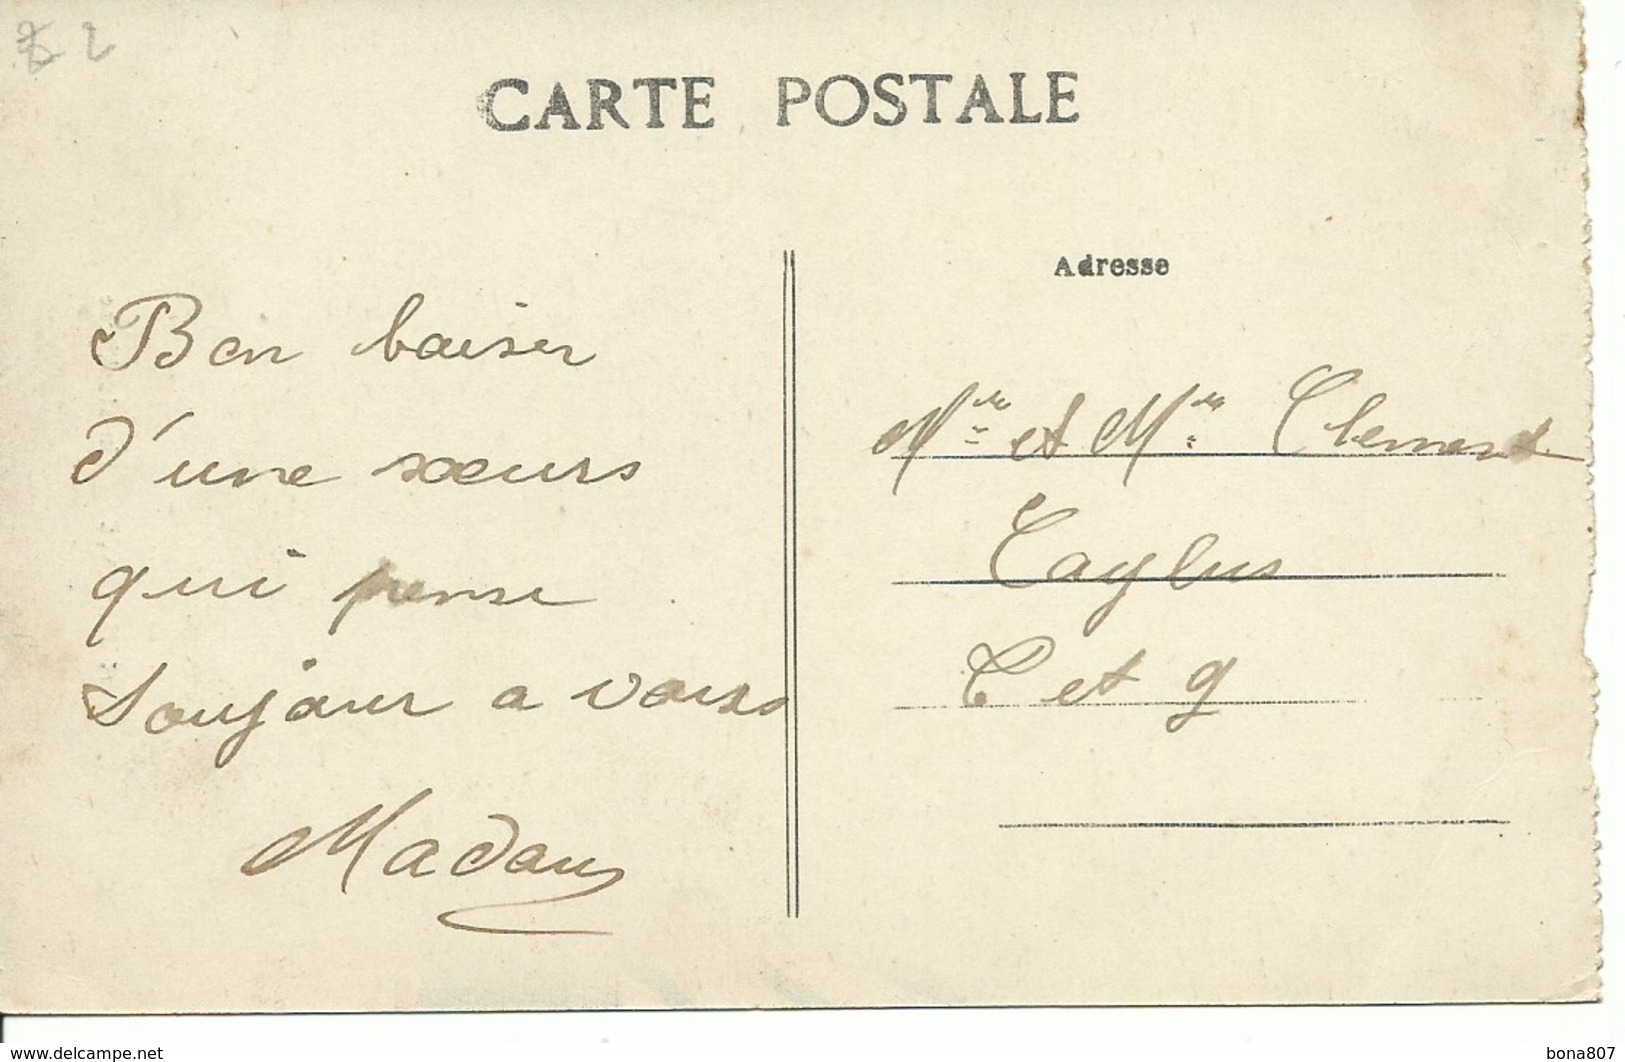 CARTE POSTALE
Adresse
Bon baiser
d'une sœurs
qui pense
soujour a vous
Madau
Mr et Mme Clement
Caylus
T et g
www.delcampe.net
bona807